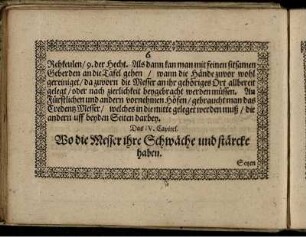 6.
Rehkeulen / 9. der Hecht. Als dann kan man mit feinen sitsamen
Geberden an die Tafel gehen / wann die Hände zuvor wohl
gereiniget / da zuvorn die Messer an ihr gehöriges Ort allbereit
gelegt / oder nach zierlichkeit beygebracht werden müssen. An
Fürstlichen und andern vornehmen Höfen / gebraucht man das
Credentz Messer / welches in de mitte geleget werden muß / die
andern uff beyden Seiten darbey.
Das IV. Capitel
Wo die Messer ihre Schwäche und stärcke
haben.
Seyen